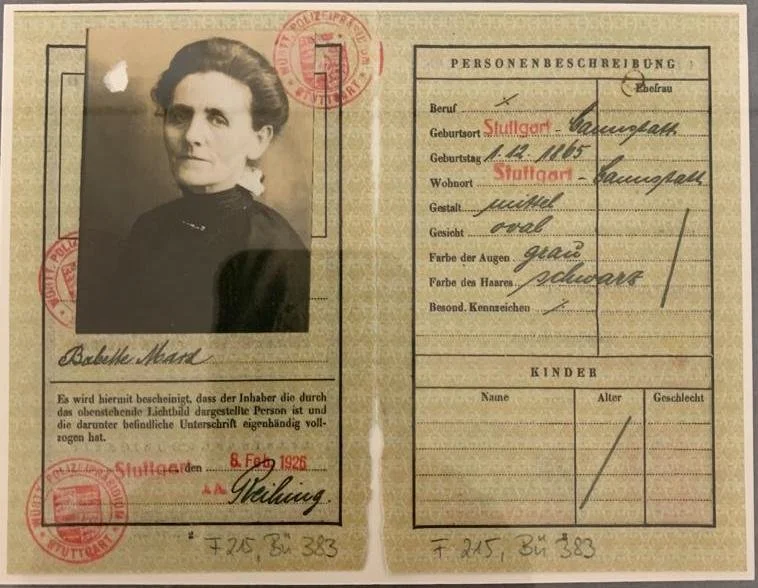 WÜRTT. POLIZEIPRÄSIDIUM
STUTTGART
Babette
Es wird hiermit bescheinigt, dass der Inhaber die durch
das obenstehende Lichtbild dargestellte Person ist und
die darunter befindliche Unterschrift eigenhändig voll-
zogen hat.
Stuttgart den 8. Feb. 1926
WÜRTT. POLIZEIPRÄSIDIUM
STUTTGART
F 215, Bü 383
PERSONENBESCHREIBUNG
Ehefrau
Beruf
Geburtsort Stuttgart - Cannstatt
Geburtstag 1.12.1865
Wohnort Stuttgart - Cannstatt
Gestalt mittel
Gesicht oval
Farbe der Augen grau
Farbe des Haares schwarz
Besond. Kennzeichen
KINDER
Name Alter Geschlecht
F 215, Bü 383